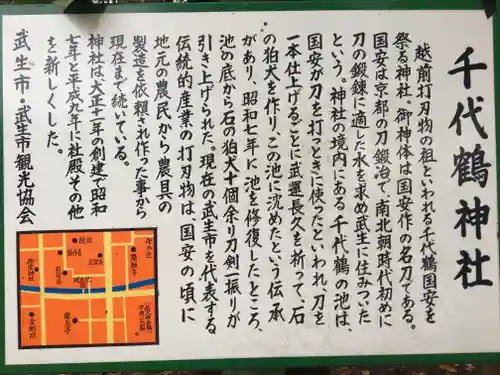 千代鶴神社
越前打刃物の祖といわれる千代鶴国安を
祭る神社。御神体は国安作の名刀である。
国安は京都の刀鍛冶で、南北朝時代初めに
刀の鍛錬に適した水を求め武生に住みついた
という。神社の境内にある千代鶴の池は、
国安が刀を打つときに使つたといわれ、刀を
一本仕上げるごとに武運長久を祈って、石
の狛犬を作り、この池に沈めたという伝承
があり、昭和七年に池を修復したところ、
池の底から石の狛犬十個余り刀剣一振りが
引き上げられた。現在の武生市を代表する
伝統的産業の打刃物は、国安の頃に
地元の農民から農具の
製造を依頼され作った事から
現在まで続いている。
神社は、大正十一年の創建で昭和
七年と平成九年に社殿その他
を新しくした。
武生市・武生市観光協会
総社
龍泉寺
中央公園